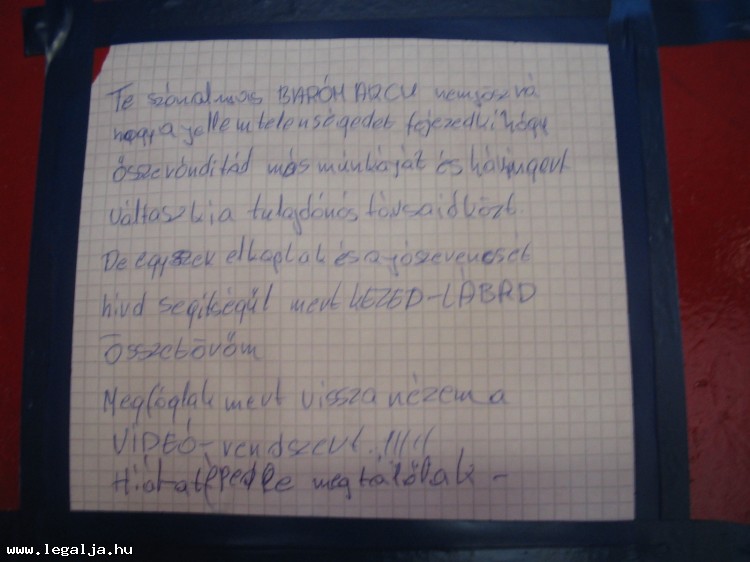 Te szónalmas BARÓM ARCU nem josz rá
hogy a jellemtelenségedet fejezed ki hogy
összeróndítád más munkáját és háringert
váltasz ki a tulajdónós tórsaid közt.
De egyszer elkaplak és a jószerencsét
hivd segitségűl mert KEZED-LÁBAD
összetörőm
Megfóglak mert vissza nézem a
VIDEÓ-rendszert.!!!!!
Hióba téped le megtalóllak -
www.legalja.hu